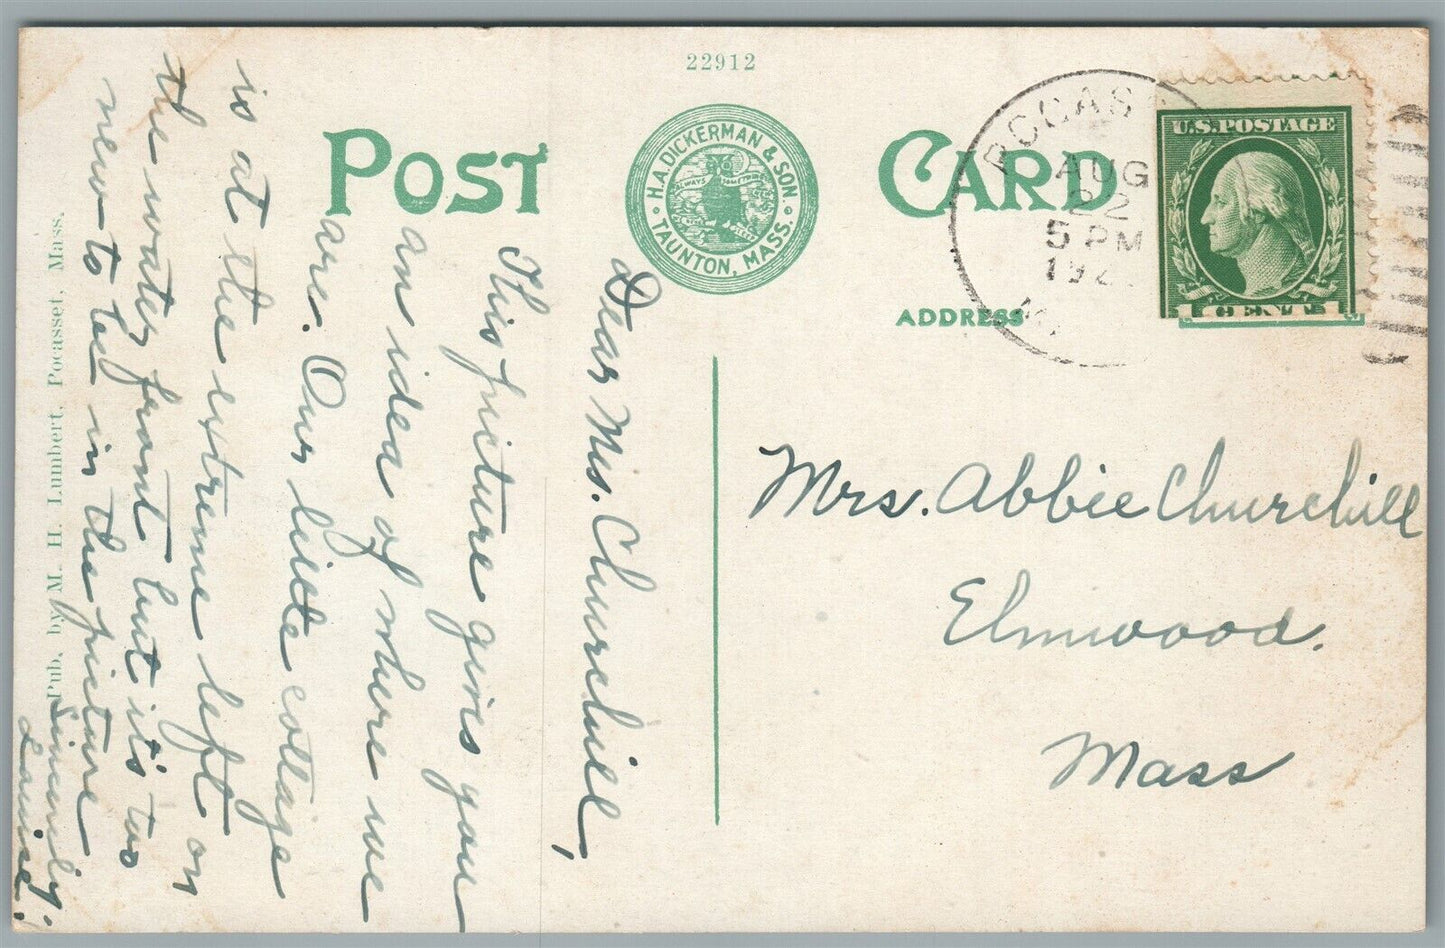 22912
POST CARD
H. A. DICKERMAN & SON.
TAUNTON, MASS.
ALWAYS
POCAS
AUG
22
5 PM
192
U.S. POSTAGE
1 CENT 1
ADDRESS
Dear Mrs. Churchill,
This picture gives you
an idea of where we
are. Our little cottage
is at the extreme left on
the water front but it's too
new to be in the picture
Sincerely,
Louise.
Mrs. Abbie Churchill
Elmwood.
Mass
Pub. by M. H. Lumbert, Pocasset, Mass.